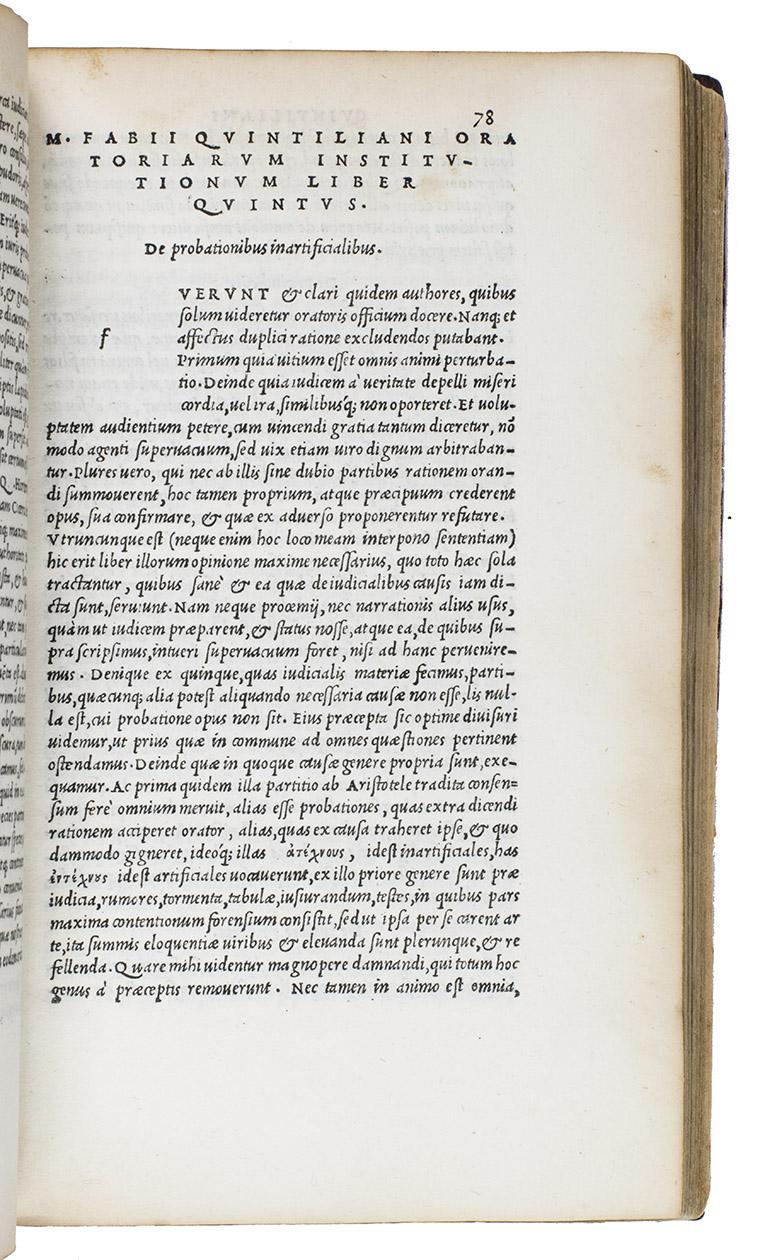 78
M. FABII QVINTILIANI ORA
TORIARVM INSTITV-
TIONVM LIBER
QVINTVS.
De probationibus inartificialibus.
VERVNT & clari quidem authores, quibus
solum uideretur oratoris officium docere. Nanq; et
f
affectus duplici ratione excludendos putabant.
Primum quia uitium esset omnis animi perturba-
tio. Deinde quia iudicem à ueritate depelli miseri
cordia, uel ira, similibusq; non oporteret. Et uolu-
ptatem audientium petere, cum uincendi gratia tantum diceretur, nō
modo agenti superuacuum, sed uix etiam uiro dignum arbitraban-
tur. Plures uero, qui nec ab illis sine dubio partibus rationem oran-
di summouerent, hoc tamen proprium, atque præcipuum crederent
opus, sua confirmare, & quæ ex aduerso proponerentur refutare.
Vtruncunque est (neque enim hoc loco meam interpono sententiam)
hic erit liber illorum opinione maxime necessarius, quo toto hæc sola
tractantur, quibus sanè & ea quæ de iudicialibus causis iam di-
cta sunt, seruiunt. Nam neque procemij, nec narrationis alius usus,
quàm ut iudicem præparent, & status nosse, atque ea, de quibus su-
pra scripsimus, intueri superuacuum foret, nisi ad hanc perueniré-
mus. Denique ex quinque, quas iudicialis materiæ fecimus, parti-
bus, quæcunq; alia potest aliquando necessaria causæ non esse, lis nul-
la est, cui probatione opus non sit. Eius præcepta sic optime diuisuri
uidemur, ut prius quæ in commune ad omnes quæstiones pertinent
ostendamus. Deinde quæ in quoque causæ genere propria sunt, exe-
quamur. Ac prima quidem illa partitio ab Aristotele tradita consen=
sum ferè omnium meruit, alias esse probationes, quas extra dicendi
rationem acciperet orator, alias, quas ex causa traheret ipse, & quo
dammodo gigneret, ideoq; illas ἀτέχνους, idest inartificiales, has
ἐντέχνους idest artificiales uocauerunt, ex illo priore genere sunt præ
iudicia, rumores, tormenta, tabulæ, iusiurandum, testes, in quibus pars
maxima contentionum forensium consistit, sed ut ipsa per se carent ar
te, ita summis eloquentiæ uiribus & eleuanda sunt plerunque, & re
fellenda. Quare mihi uidentur magnopere damnandi, qui totum hoc
genus à præceptis remouerunt. Nec tamen in animo est omnia,